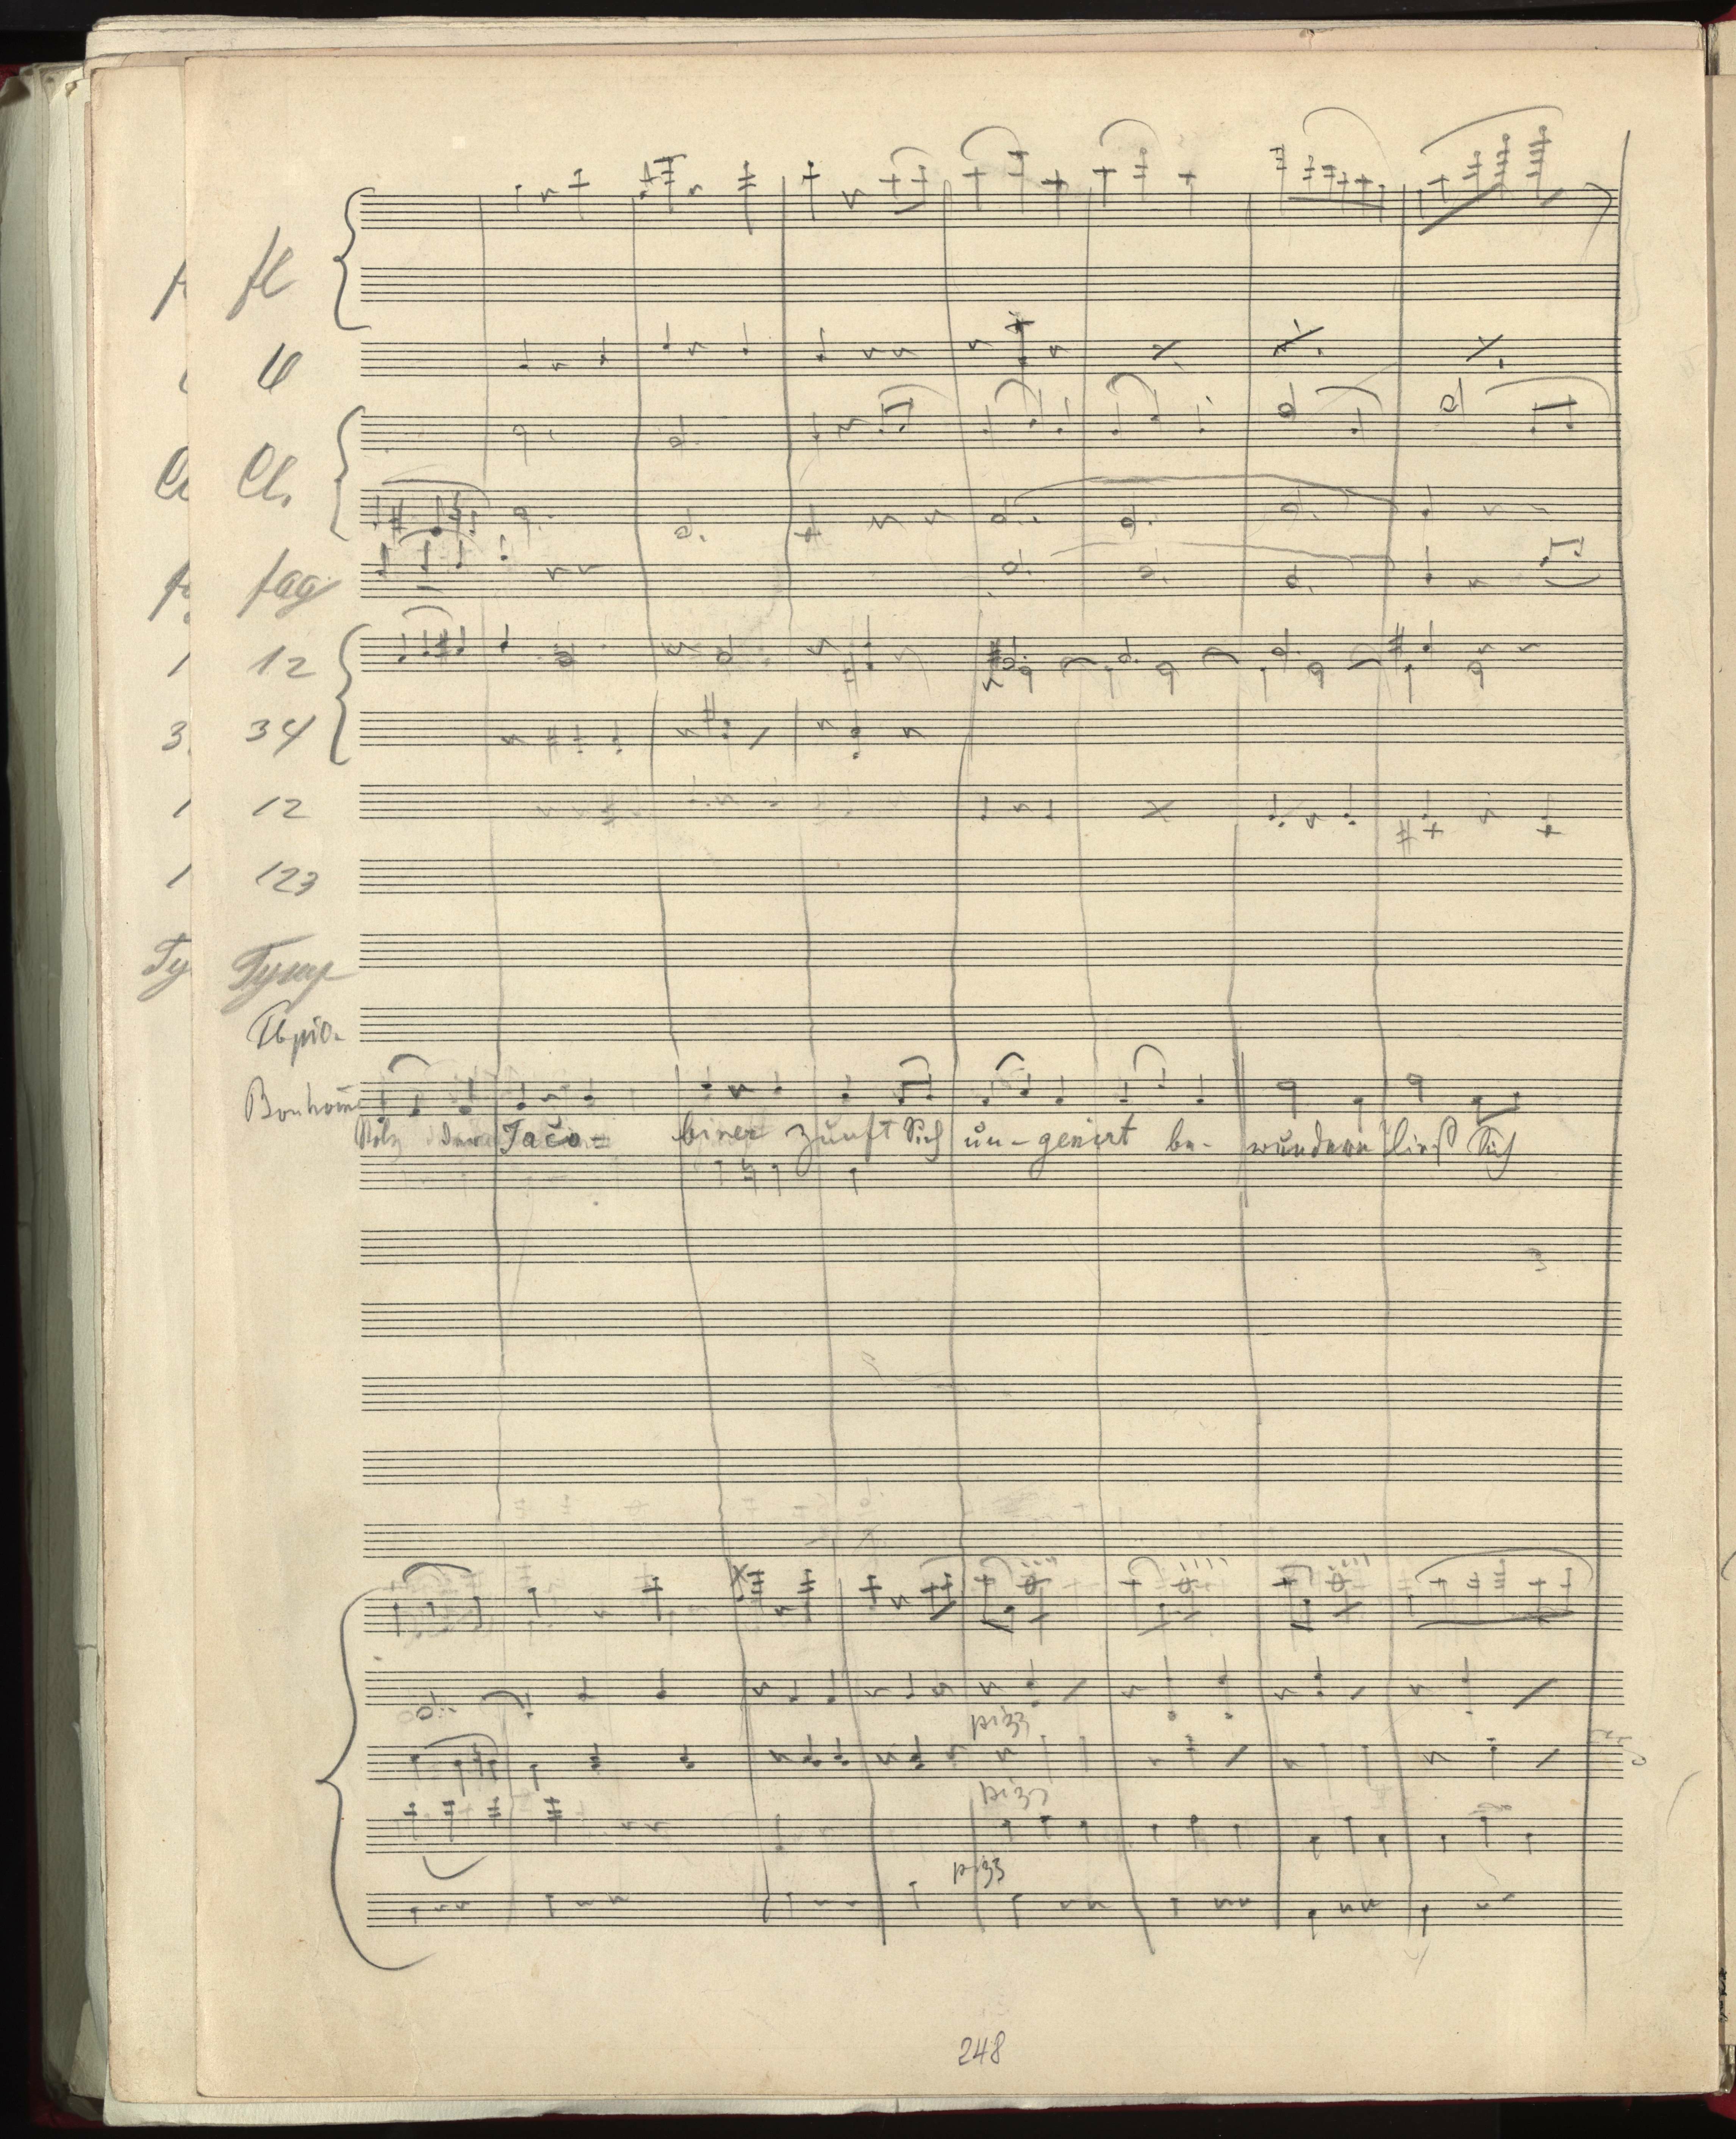 fl
Cl.
fag
12
34
12
123
Tymp
Bonhom̄e
Stolz der Jaco- biner zunft Sich un-geniert be- wundern ließ Sich
pizz
pizz
pizz
248